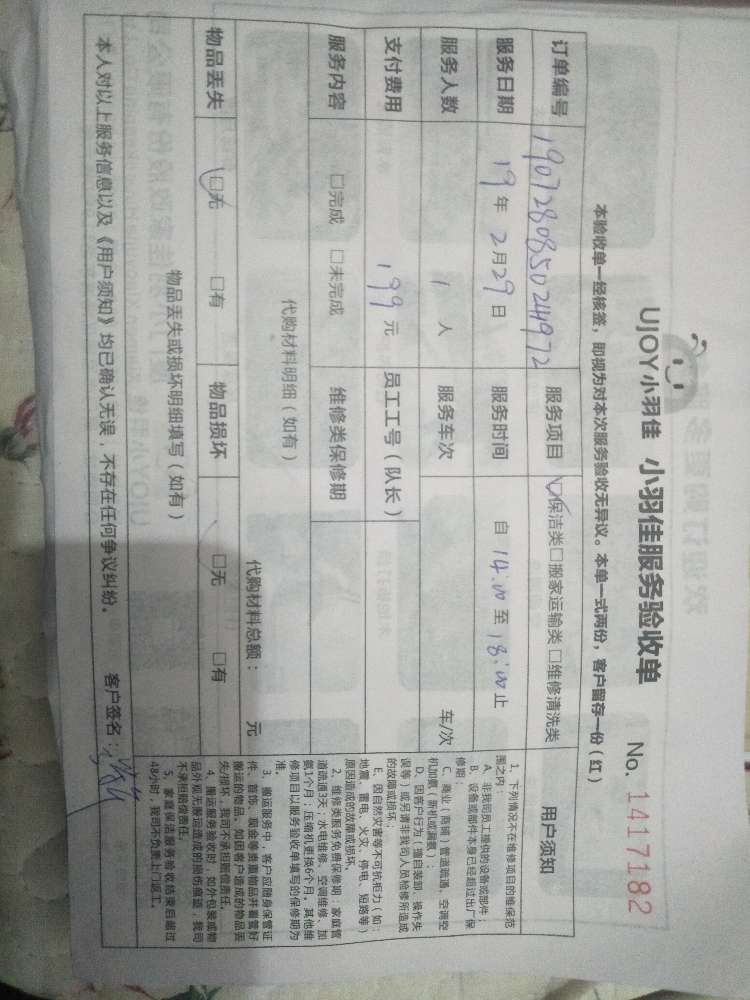 UJOY小羽佳 小羽佳服务验收单 No. 1417182
本验收单一经核签，即视为对本次服务验收无异议。本单一式两份，客户留存一份（红）
订单编号 190728085024972 服务项目 保洁类□搬家运输类□维修清洗类
服务日期 19年2月29日 服务时间 自14:00至18:00止
服务人数 1人 服务车次 车/次
支付费用 199元 员工工号（队长）
服务内容 □完成 □未完成 维修类保修期
代购材料明细（如有）
代购材料总额： 元
物品丢失 □无 □有 物品损坏 □无 □有
物品丢失或损坏明细填写（如有）
本人对以上服务信息以及《用户须知》均已确认无误，不存在任何争议纠纷。 客户签名：
用户须知
1、下列情况不在维修项目的维保范
围之内：
A、非我司员工提供的设备或部件；
B、设备或部件本身已经超过出厂保
修期；
C、商业（商铺）管道疏通、空调空
机加氨（新机或漏氨）；
D、因客户行为（擅自装卸、操作失
误等）或另请非我司人员检修所造成
的故障或损坏；
E、因自然灾害等不可抗拒力（如：
地震、雷电、火灾、停电、短路等）
原因造成的故障或损坏。
2、维修类服务免费保修期：家庭管
道疏通3天，水电维修、空调维修、加
氨1个月；压缩机更换6个月。其他维
修项目以服务验收单填写的保修期为
准。
3、搬运服务中，客户应随身保管证
件、首饰、现金等贵重物品并看管好
搬运的物品，如因客户造成的物品丢
失/损坏，我司不承担赔偿责任。
4、搬运服务验收时，如外包装或物
品外观无破损造成的损伤痕迹，我司
不承担赔偿责任。
5、家庭保洁服务验收结束后超过
48小时，我司不负责上门返工。